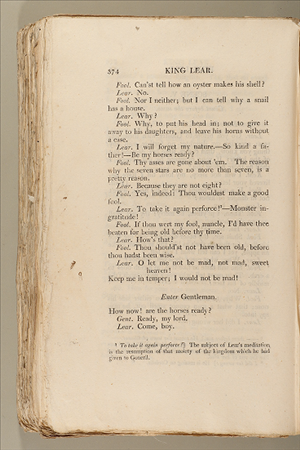 374 KING LEAR.
Fool. Can'st tell how an oyster makes his shell?
Lear. No.
Fool. Nor I neither; but I can tell why a snail
has a house.
Lear. Why?
Fool. Why, to put his head in; not to give it
away to his daughters, and leave his horns without
a case.
Lear. I will forget my nature.—So kind a fa-
ther!—Be my horses ready?
Fool. Thy asses are gone about 'em. The reason
why the seven stars are no more than seven, is a
pretty reason.
Lear. Because they are not eight?
Fool. Yes, indeed: Thou wouldest make a good
fool.
Lear. To take it again perforce!¹—Monster in-
gratitude!
Fool. If thou wert my fool, nuncle, I'd have thee
beaten for being old before thy time.
Lear. How's that?
Fool. Thou should'st not have been old, before
thou hadst been wise.
Lear. O let me not be mad, not mad, sweet
heaven!
Keep me in temper; I would not be mad!
Enter Gentleman.
How now! are the horses ready?
Gent. Ready, my lord.
Lear. Come, boy.
¹ To take it again perforce!] The subject of Lear's meditation
is the resumption of that moiety of the kingdom which he had
given to Goneril.